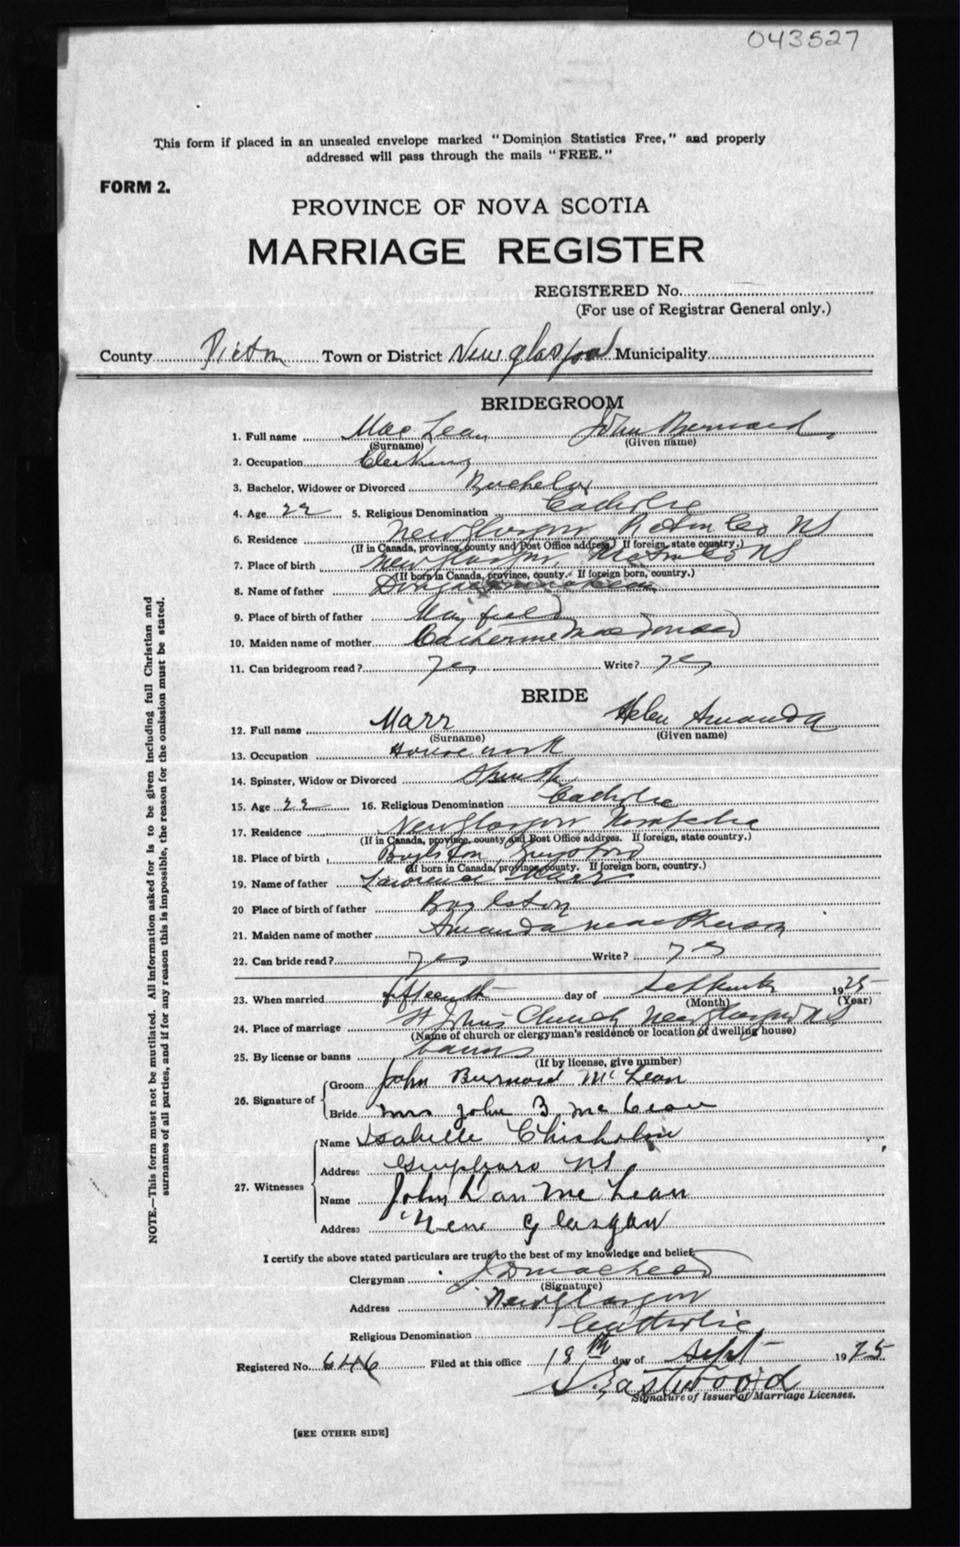 043527
This form if placed in an unsealed envelope marked "Dominion Statistics Free," and properly
addressed will pass through the mails "FREE."
FORM 2.
PROVINCE OF NOVA SCOTIA
MARRIAGE REGISTER
REGISTERED No.
(For use of Registrar General only.)
County Pictou Town or District New Glasgow Municipality
BRIDEGROOM
1. Full name MacLean John Bernard
(Surname) (Given name)
2. Occupation
3. Bachelor, Widower or Divorced Bachelor
4. Age 22 5. Religious Denomination Catholic
6. Residence New Glasgow Pictou Co NS
(If in Canada, province, county and Post Office address. If foreign, state country.)
7. Place of birth New Glasgow Pictou Co NS
(If born in Canada, province, county. If foreign born, country.)
8. Name of father
9. Place of birth of father Mayfield
10. Maiden name of mother Catherine MacDonald
11. Can bridegroom read? yes Write? yes
BRIDE
12. Full name Marr Helen Amanda
(Surname) (Given name)
13. Occupation House work
14. Spinster, Widow or Divorced
15. Age 22 16. Religious Denomination Catholic
17. Residence New Glasgow
(If in Canada, province, county and Post Office address. If foreign, state country.)
18. Place of birth Boylston
(If born in Canada, province, county. If foreign born, country.)
19. Name of father Lawrence Marr
20 Place of birth of father Boylston
21. Maiden name of mother Amanda MacPherson
22. Can bride read? yes Write? yes
23. When married fifteenth day of September 1925
(Month) (Year)
24. Place of marriage St Johns Church New Glasgow NS
(Name of church or clergyman's residence or location of dwelling house)
25. By license or banns banns
(If by license, give number)
26. Signature of
Groom John Bernard McLean
Bride Mrs John B McLean
27. Witnesses
Name Isabelle Chisholm
Address Guysboro NS
Name John Dan McLean
Address New Glasgow
I certify the above stated particulars are true to the best of my knowledge and belief.
Clergyman
(Signature)
Address New Glasgow
Religious Denomination Catholic
Registered No. 646 Filed at this office 18th day of Sept 1925
Eastwood
Signature of Issuer of Marriage Licenses.
[SEE OTHER SIDE]
NOTE.—This form must not be mutilated. All information asked for is to be given including full Christian and
surnames of all parties, and if for any reason this is impossible, the reason for the omission must be stated.